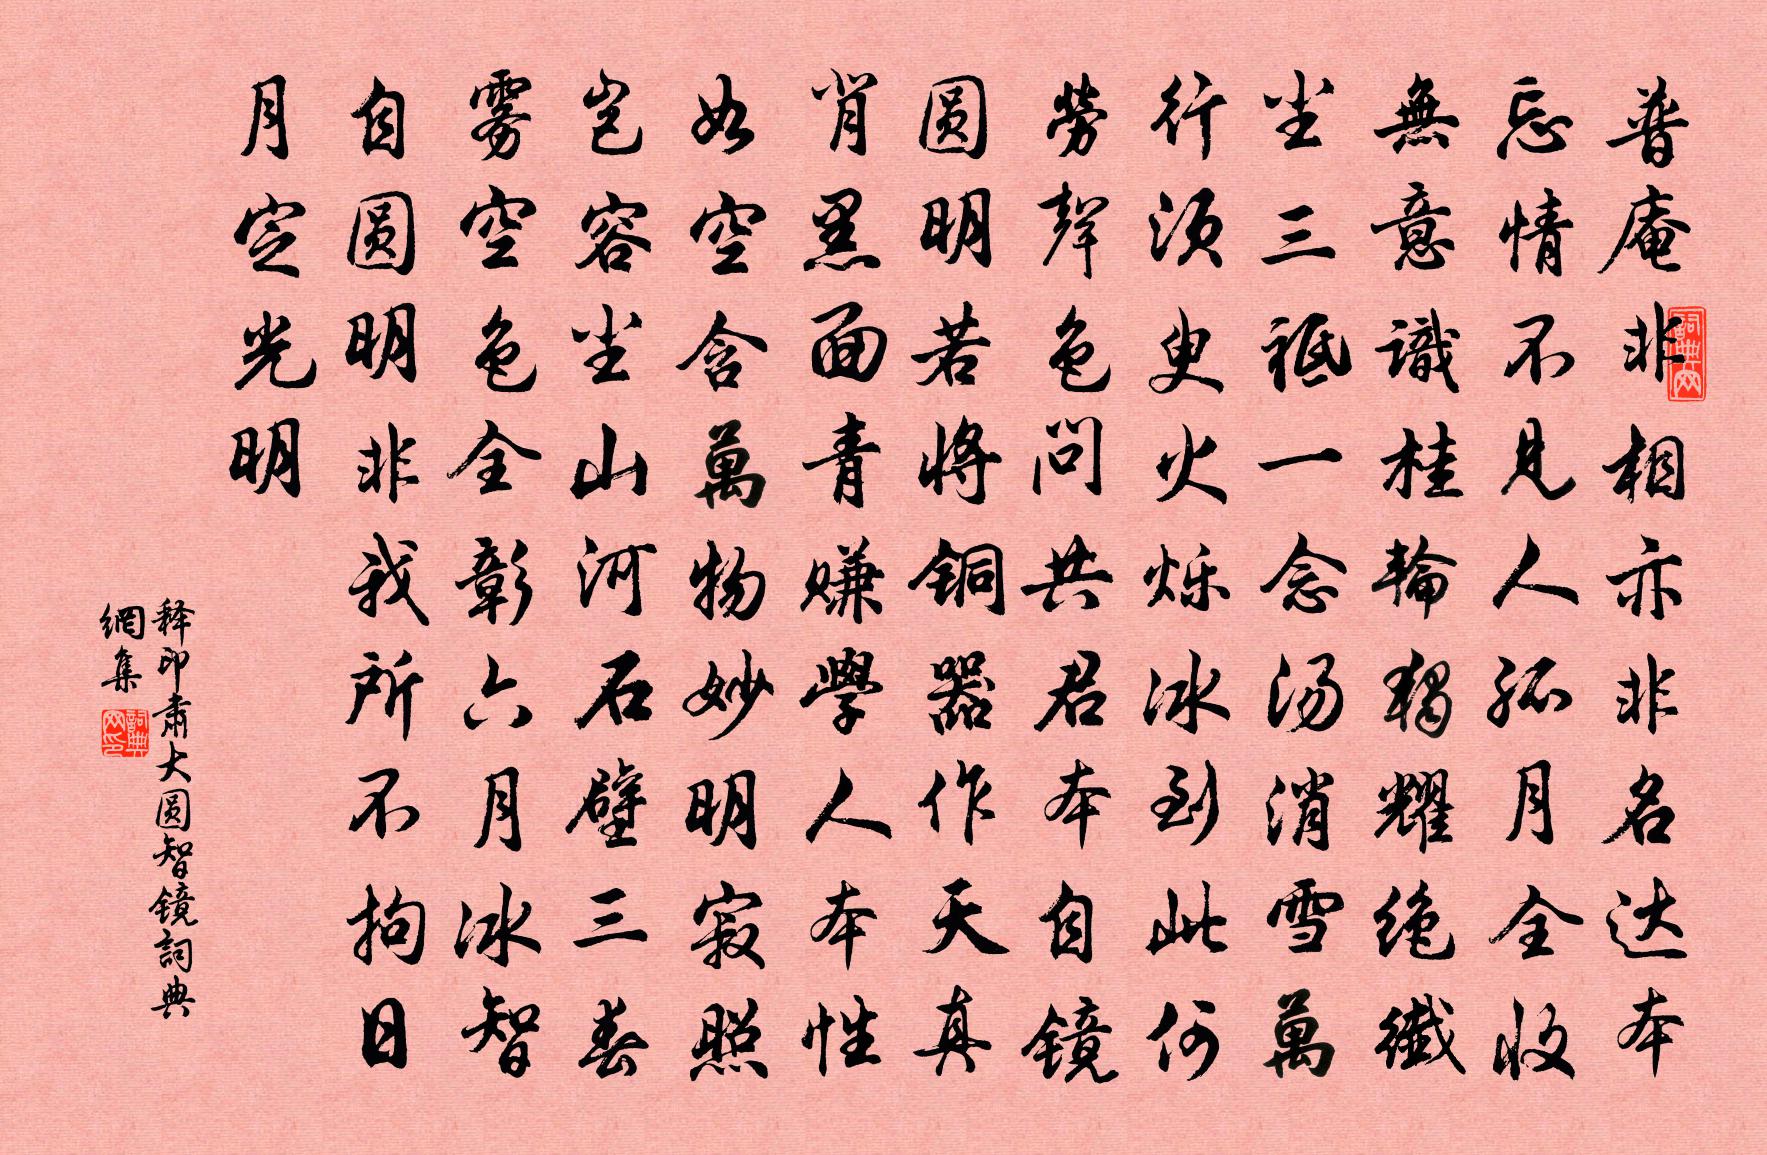 普庵非相亦非名达本
忘情不见人孤月全收
無意識桂輪独耀绝纖
尘三祗一念汤消雪萬
行须臾火烁冰到此何
劳聲色问共君本自镜
圆明若将铜器作天真
肖黑面青赚學人本性
如空含萬物妙明寂照
岂容尘山河石壁三春
雾空色全彰六月冰智
自圆明非我所不拘日
月定光明
释印肃大圆智镜詞典
網集
詞典网
詞典网印